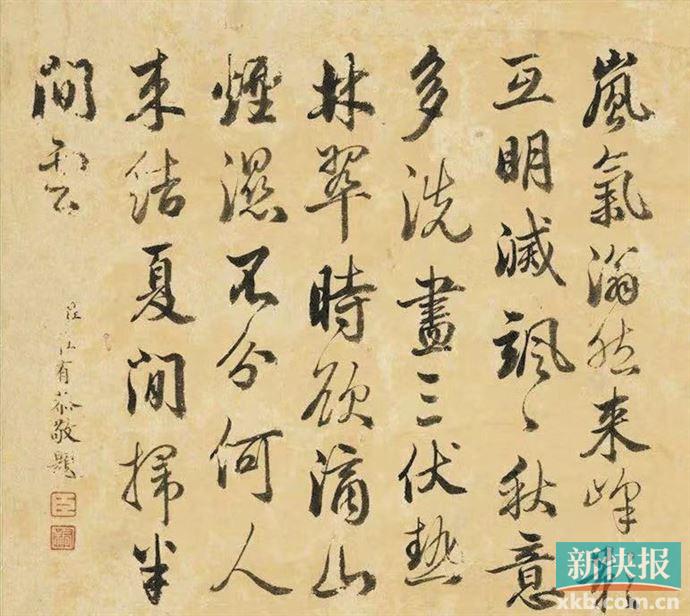 嵐氣滃然來峰影
互明滅颯〻秋意
多洗盡三伏熱
林翠時欲滴山
煙濕不分何人
來結夏閒掃半
間雲
臣莊有恭敬題
臣
新快报
xkb.com.cn